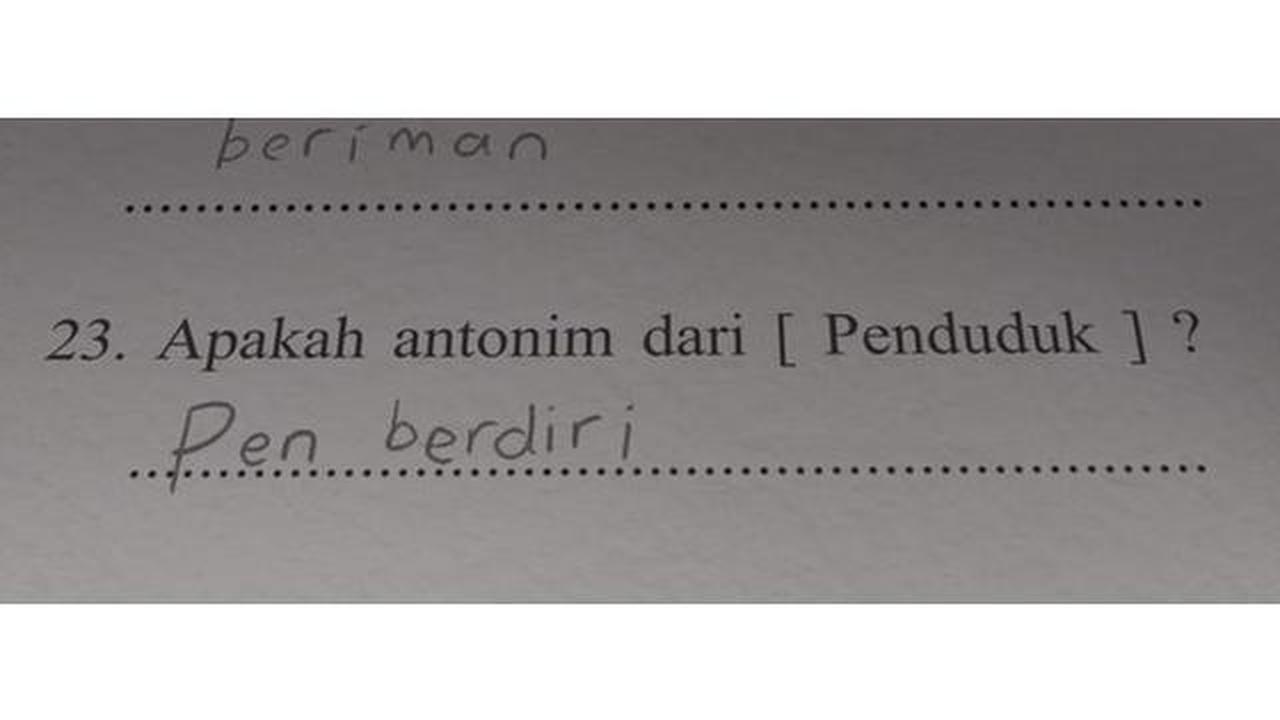 beriman
23. Apakah antonim dari [ Penduduk ] ?
Pen berdiri